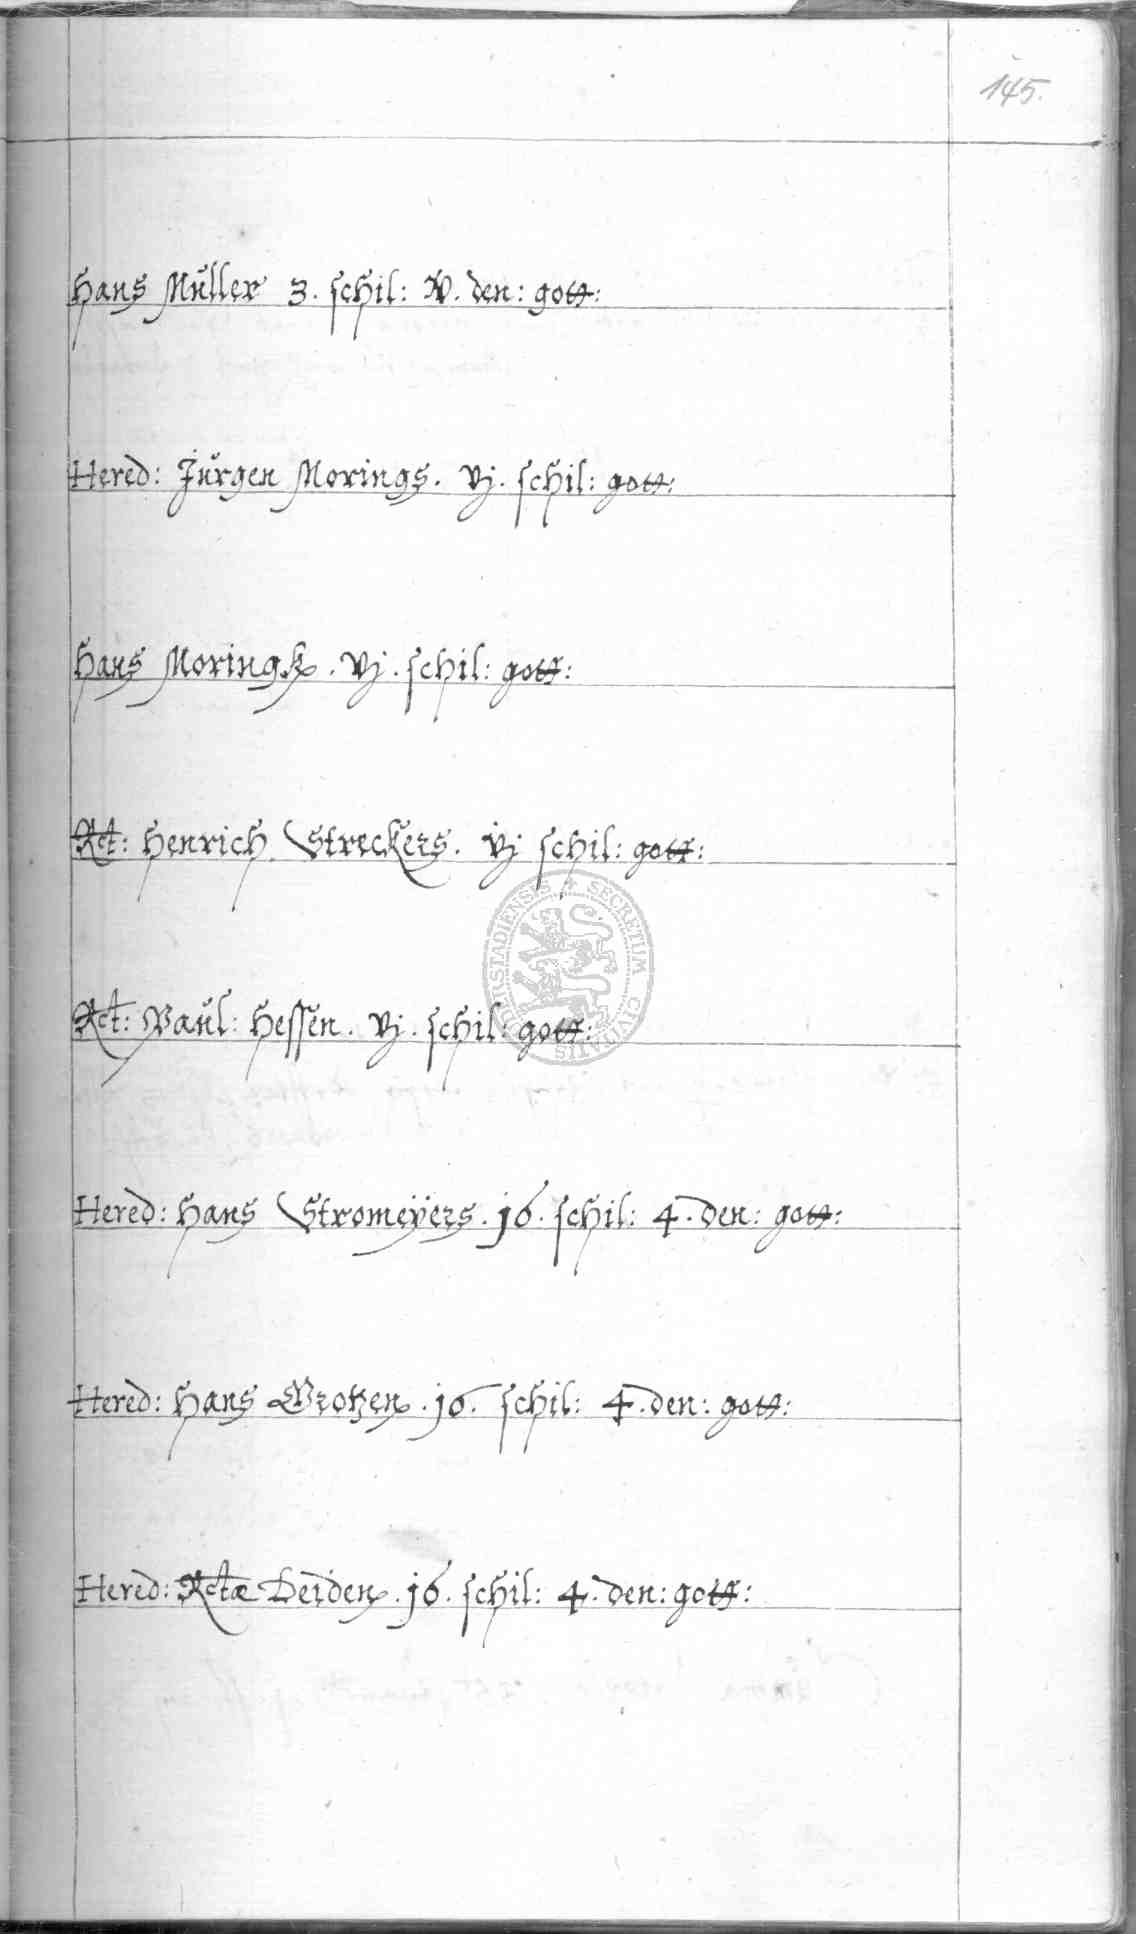 145.
Hans Müller 3. schil: iv. den: gott:
Hered: Jürgen Morings. vj. schil: gott:
Hans Moringk. vj. schil: gott:
Rct: Henrich Streckers. vj schil: gott:
Rct: Paul: Hessen. vj. schil: gott:
Hered: Hans Stromeÿers. 16. schil: 4. den: gott:
Hered: Hans Grotzen. 16. schil: 4. den: gott:
Hered: Rctæ Deiden. 16. schil: 4. den: gott:
SECRETUM CIVITATIS DERSTADIENSIS